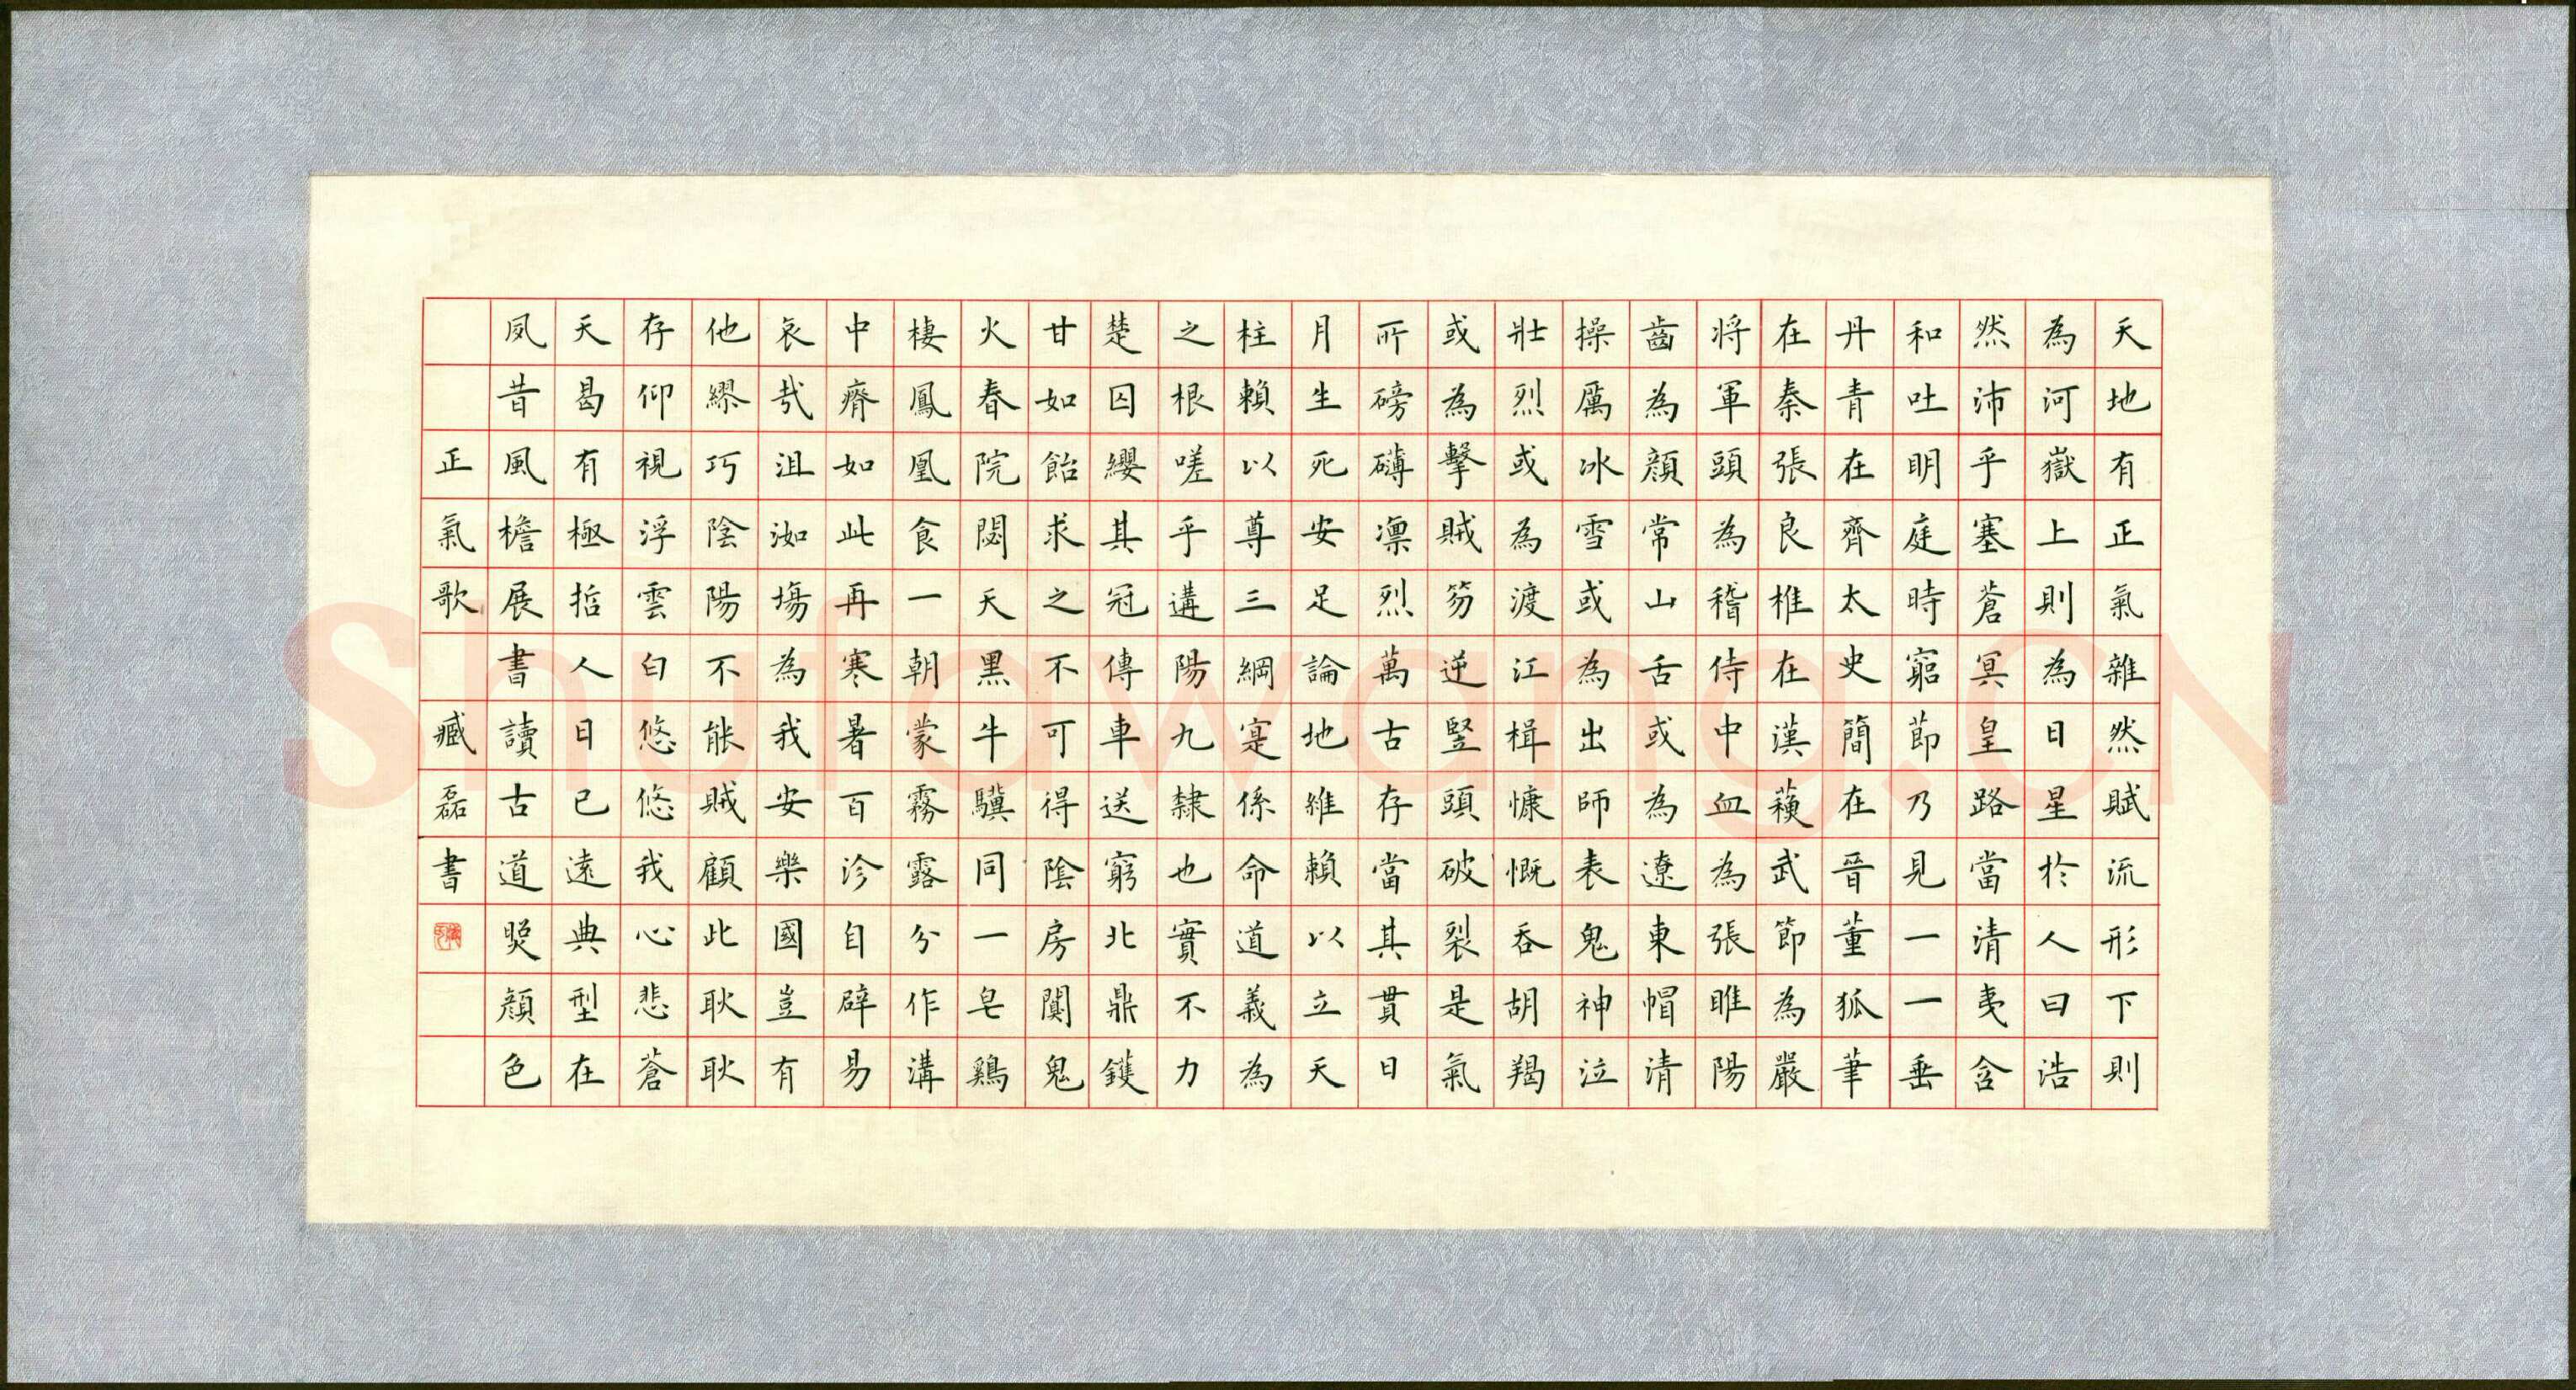 天地有正氣雜然賦流形下則
為河嶽上則為日星於人曰浩
然沛乎塞蒼冥皇路當清夷含
和吐明庭時窮節乃見一一垂
丹青在齊太史簡在晉董狐筆
在秦張良椎在漢蘇武節為嚴
将軍頭為稽侍中血為張睢陽
齒為顔常山舌或為遼東帽清
操厲冰雪或為出師表鬼神泣
壯烈或為渡江楫慷慨吞胡羯
或為擊賊笏逆竪頭破裂是氣
所磅礴凛烈萬古存當其貫日
月生死安足論地維賴以立天
柱賴以尊三綱寔係命道義為
之根嗟乎遘陽九隸也實不力
楚囚纓其冠傳車送窮北鼎鑊
甘如飴求之不可得陰房闃鬼
火春院閟天黑牛驥同一皂鷄
棲鳳凰食一朝蒙霧露分作溝
中瘠如此再寒暑百沴自辟易
哀哉沮洳場為我安樂國豈有
他繆巧陰陽不能賊顧此耿耿
存仰視浮雲白悠悠我心悲蒼
天曷有極哲人日已遠典型在
夙昔風檐展書讀古道煚顔色
正氣歌 臧磊書